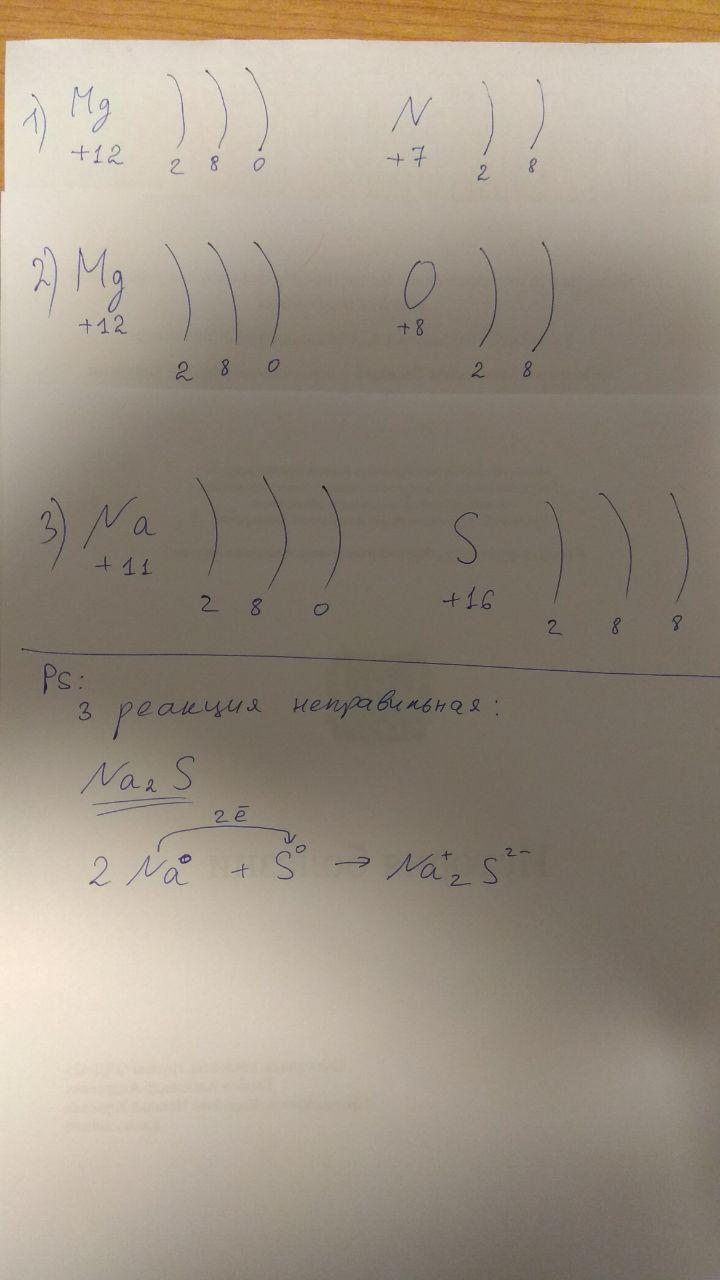 1) Mg ) ) ) N ) )
+12 2 8 0 +7 2 8
2) Mg ) ) ) O ) )
+12 2 8 0 +8 2 8
3) Na ) ) ) S ) ) )
+11 2 8 0 +16 2 8 8
PS:
3 реакция неправильная:
Na₂S
2ē
2 Na⁰ + S⁰ → Na⁺₂S²⁻